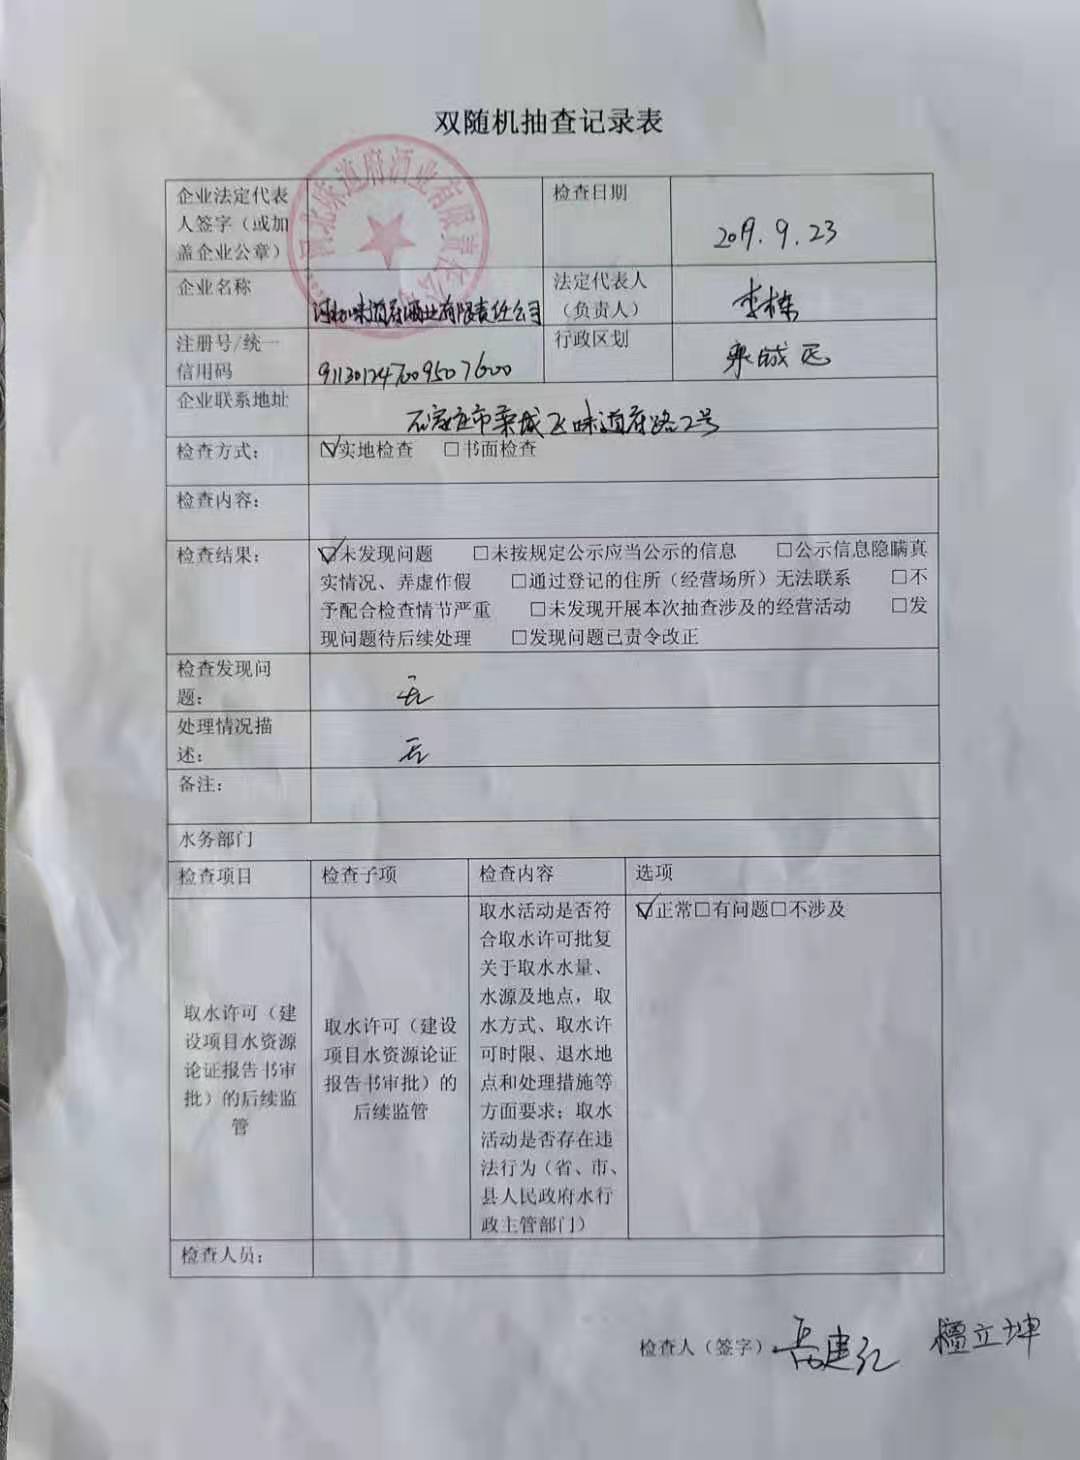 双随机抽查记录表
河北味道府酒业有限责任公司
企业法定代表
人签字（或加
盖企业公章）
检查日期
2019.9.23
企业名称
河北味道府酒业有限责任公司
法定代表人
（负责人）
李栋
注册号/统一
信用码
911301247009507600
行政区划
栾城区
企业联系地址
石家庄市栾城区味道府路2号
检查方式：
☑实地检查 □书面检查
检查内容：
检查结果：
☑未发现问题 □未按规定公示应当公示的信息 □公示信息隐瞒真
实情况、弄虚作假 □通过登记的住所（经营场所）无法联系 □不
予配合检查情节严重 □未发现开展本次抽查涉及的经营活动 □发
现问题待后续处理 □发现问题已责令改正
检查发现问
题：
无
处理情况描
述：
无
备注：
水务部门
检查项目
检查子项
检查内容
选项
取水许可（建
设项目水资源
论证报告书审
批）的后续监
管
取水许可（建设
项目水资源论证
报告书审批）的
后续监管
取水活动是否符
合取水许可批复
关于取水水量、
水源及地点，取
水方式、取水许
可时限、退水地
点和处理措施等
方面要求；取水
活动是否存在违
法行为（省、市、
县人民政府水行
政主管部门）
☑正常□有问题□不涉及
检查人员：
检查人（签字） 檀立坤